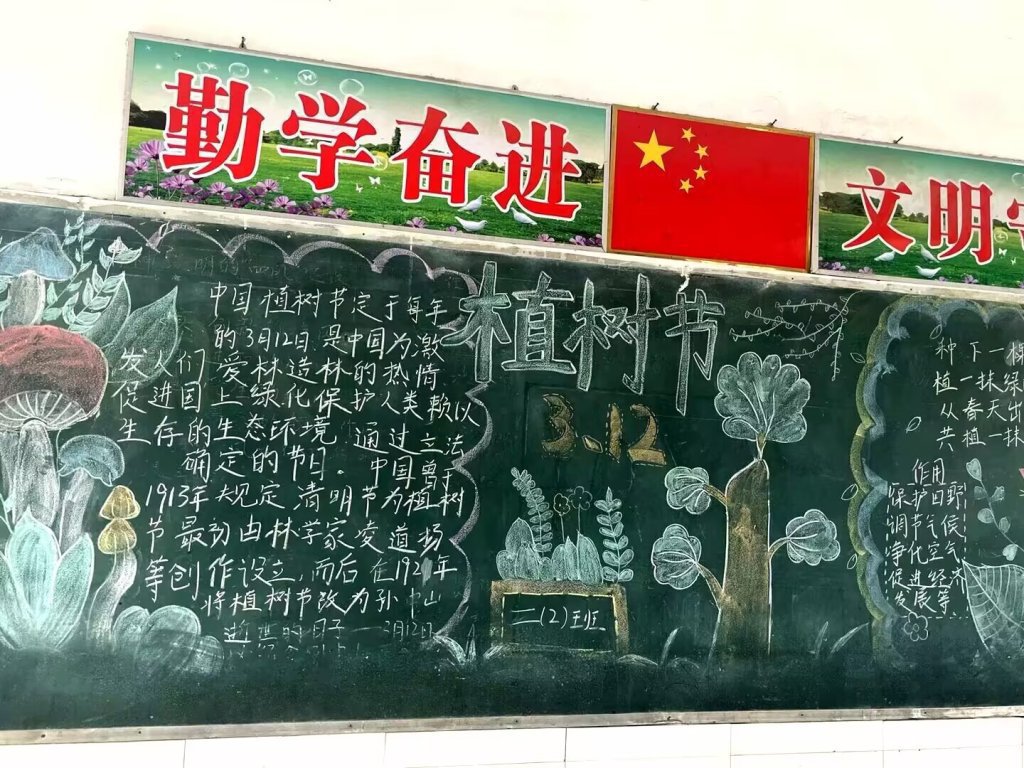 勤学奋进
文明
中国植树节定于每年
的3月12日 是中国为激
发人们 爱林造林的热情
促进国 土绿化保护人类赖以
生存的生态环境 通过立法
确定的节日. 中国曾于
1913年规定清明节为植树
节最初由林学家凌道扬
等创作设立,而后在1928年
将植树节改为孙中山
逝世的日子——3月12日
植树节
3.12
二(2)班
种下一棵
植一抹绿
从春天出
共植一抹
作用
保护田野
调节气候
净化空气
促进经济
发展等